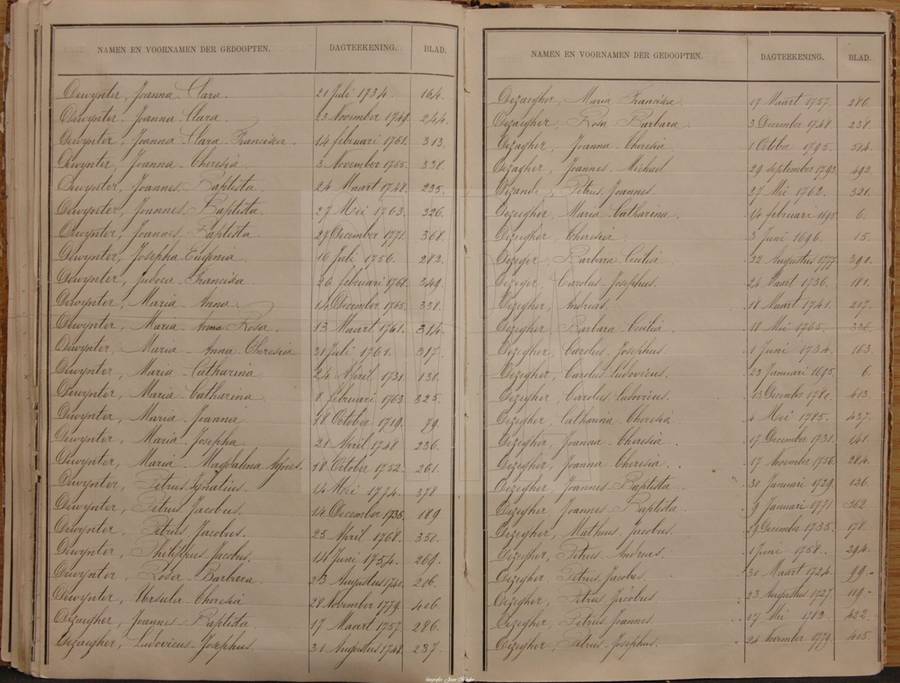 NAMEN EN VOORNAMEN DER GEDOOPTEN. DAGTEEKENING. BLAD.
Dewynter, Joanna Clara. 21 Juli 1734. 164.
Dewynter, Joanna Clara. 13 November 1748. 244.
Dewynter, Joanna Clara Francisca. 14 februari 1761. 313.
Dewynter, Joanna Theresia. 3 November 1765. 338.
Dewynter, Joannes Baptista. 24 Maart 1748. 235.
Dewynter, Joannes Baptista. 27 Mei 1763. 326.
Dewynter, Joannes Baptista. 27 December 1771. 368.
Dewynter, Josepha Eugenia. 16 Juli 1756. 283.
Dewynter, Judoca Francisca. 26 februari 1768. 349.
Dewynter, Maria Anna. 14 December 1765. 338.
Dewynter, Maria Anna Rosa. 13 Maart 1761. 314.
Dewynter, Maria Anna Theresia. 31 Juli 1761. 317.
Dewynter, Maria Catharina. 24 April 1731. 138.
Dewynter, Maria Catharina. 8 februari 1763. 325.
Dewynter, Maria Joanna. 18 October 1719. 79.
Dewynter, Maria Josepha. 21 April 1748. 236.
Dewynter, Maria Magdalena Agnes. 18 October 1752. 261.
Dewynter, Petrus Ignatius. 14 Mei 1774. 378.
Dewynter, Petrus Jacobus. 14 December 1738. 189.
Dewynter, Petrus Jacobus. 25 April 1768. 350.
Dewynter, Philippus Jacobus. 14 Juni 1754. 269.
Dewynter, Rosa Barbara. 23 Augustus 216.
Dewynter, Ursula Theresia. 28 November 1779. 406.
Dezaegher, Joannes Baptista. 17 Maart 1757. 286.
Dezaegher, Ludovicus Josephus. 31 Augustus 1748. 237.
NAMEN EN VOORNAMEN DER GEDOOPTEN. DAGTEEKENING. BLAD.
Dezaegher, Maria Francisca. 17 Maart 1757. 286.
Dezaegher, Rosa Barbara. 3 December 1748. 238.
Dezagher, Joanna Theresia. 1 October 1795. 514.
Dezagher, Joannes Michael. 29 September 1792. 492.
Dezande, Petrus Joannes. 27 Mei 1762. 321.
Dezegher, Maria Catharina. 14 februari 1695. 6.
Dezegher, Theresia. 3 Juni 1696. 15.
Dezeger, Barbara Cecilia. 22 Augustus 1777. 390.
Dezeger, Carolus Josephus. 24 Maart 1736. 181.
Dezegher, Andreas. 18 Maart 1741. 217.
Dezegher, Barbara Cecilia. 11 Mei 1765. 336.
Dezegher, Carolus Josephus. 1 Juni 1734. 163.
Dezegher, Carolus Ludovicus. 23 Januari 1695. 6.
Dezegher, Carolus Ludovicus. 13 December 1780. 413.
Dezegher, Catharina Theresia. 4 Mei 1785. 437.
Dezegher, Joanna Theresia. 17 December 1731. 141.
Dezegher, Joanna Theresia. 17 November 1756. 284.
Dezegher, Joannes Baptista. 30 Januari 1729. 126.
Dezegher, Joannes Baptista. 9 Januari 1771. 362.
Dezegher, Matheus Jacobus. 9 December 1735. 178.
Dezegher, Petrus Andreas. 1 Juni 1758. 294.
Dezegher, Petrus Jacobus. 30 Maart 1724. 99.
Dezegher, Petrus Jacobus. 23 Augustus 1727. 119.
Dezegher, Petrus Joannes. 17 Mei 1782. 422.
Dezegher, Petrus Josephus. 21 November 1779. 405.